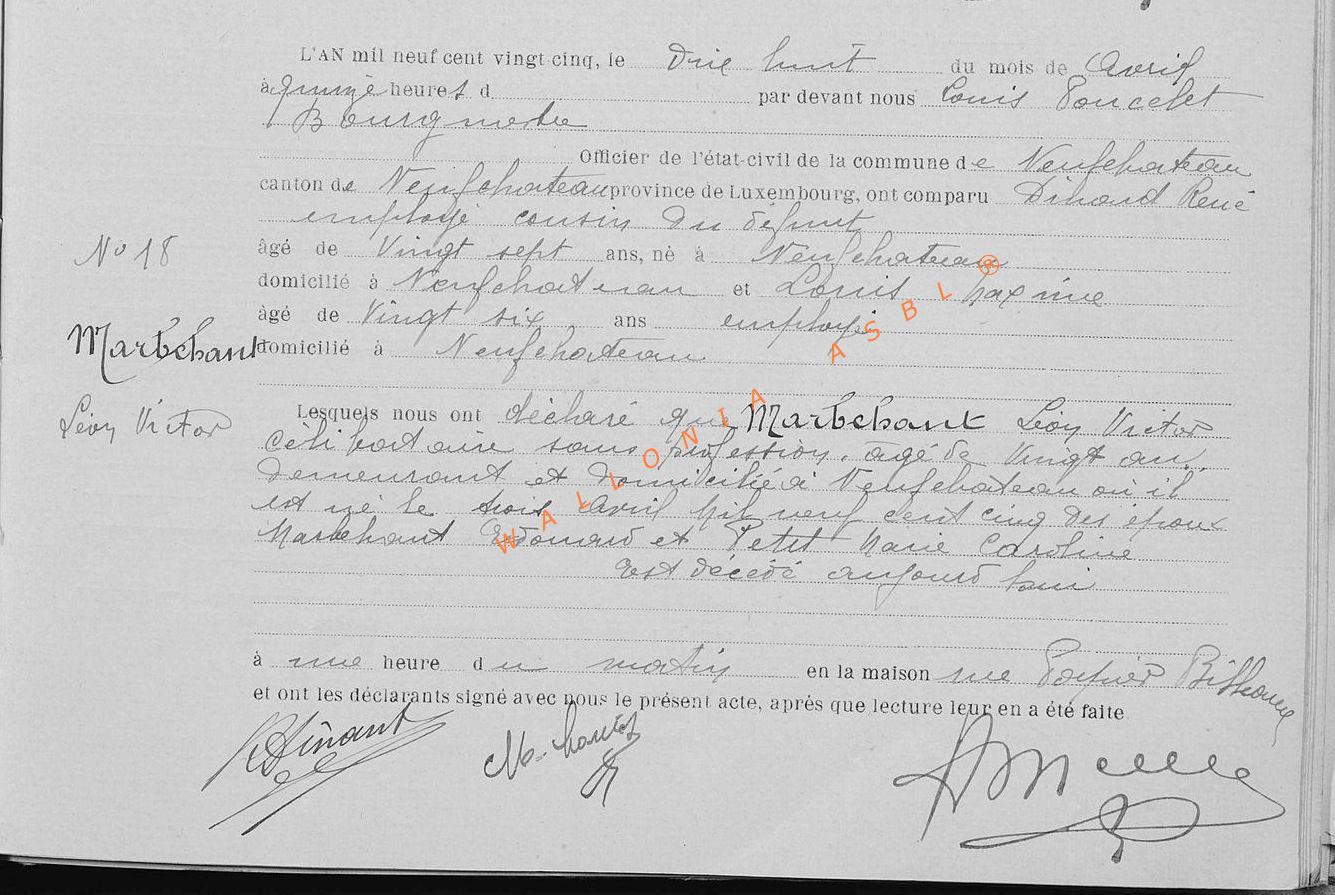 L'AN mil neuf cent vingt cinq, le Dix huit du mois de Avril
à quinze heures d par devant nous Louis Poncelet
Bourgmestre
Officier de l'état-civil de la commune de Neufchateau
canton de Neufchateau province de Luxembourg, ont comparu Dinant René
employé cousin du défunt
âgé de Vingt sept ans, né à Neufchateau
domicilié à Neufchateau et Louis Maxime
âgé de Vingt six ans employé
domicilié à Neufchateau
No 18
Marbehant
Léon Victor
Lesquels nous ont déclaré que Marbehant Léon Victor
célibataire sans profession, âgé de Vingt ans,
demeurant et domicilié à Neufchateau où il
est né le trois Avril Mil neuf cent cinq des époux
Marbehant Edouard et Petit Marie Caroline
est décédé aujourd'hui
à une heure du matin en la maison rue
et ont les déclarants signé avec nous le présent acte, après que lecture leur en a été faite
RDinant
WALLONIA ASBL ®